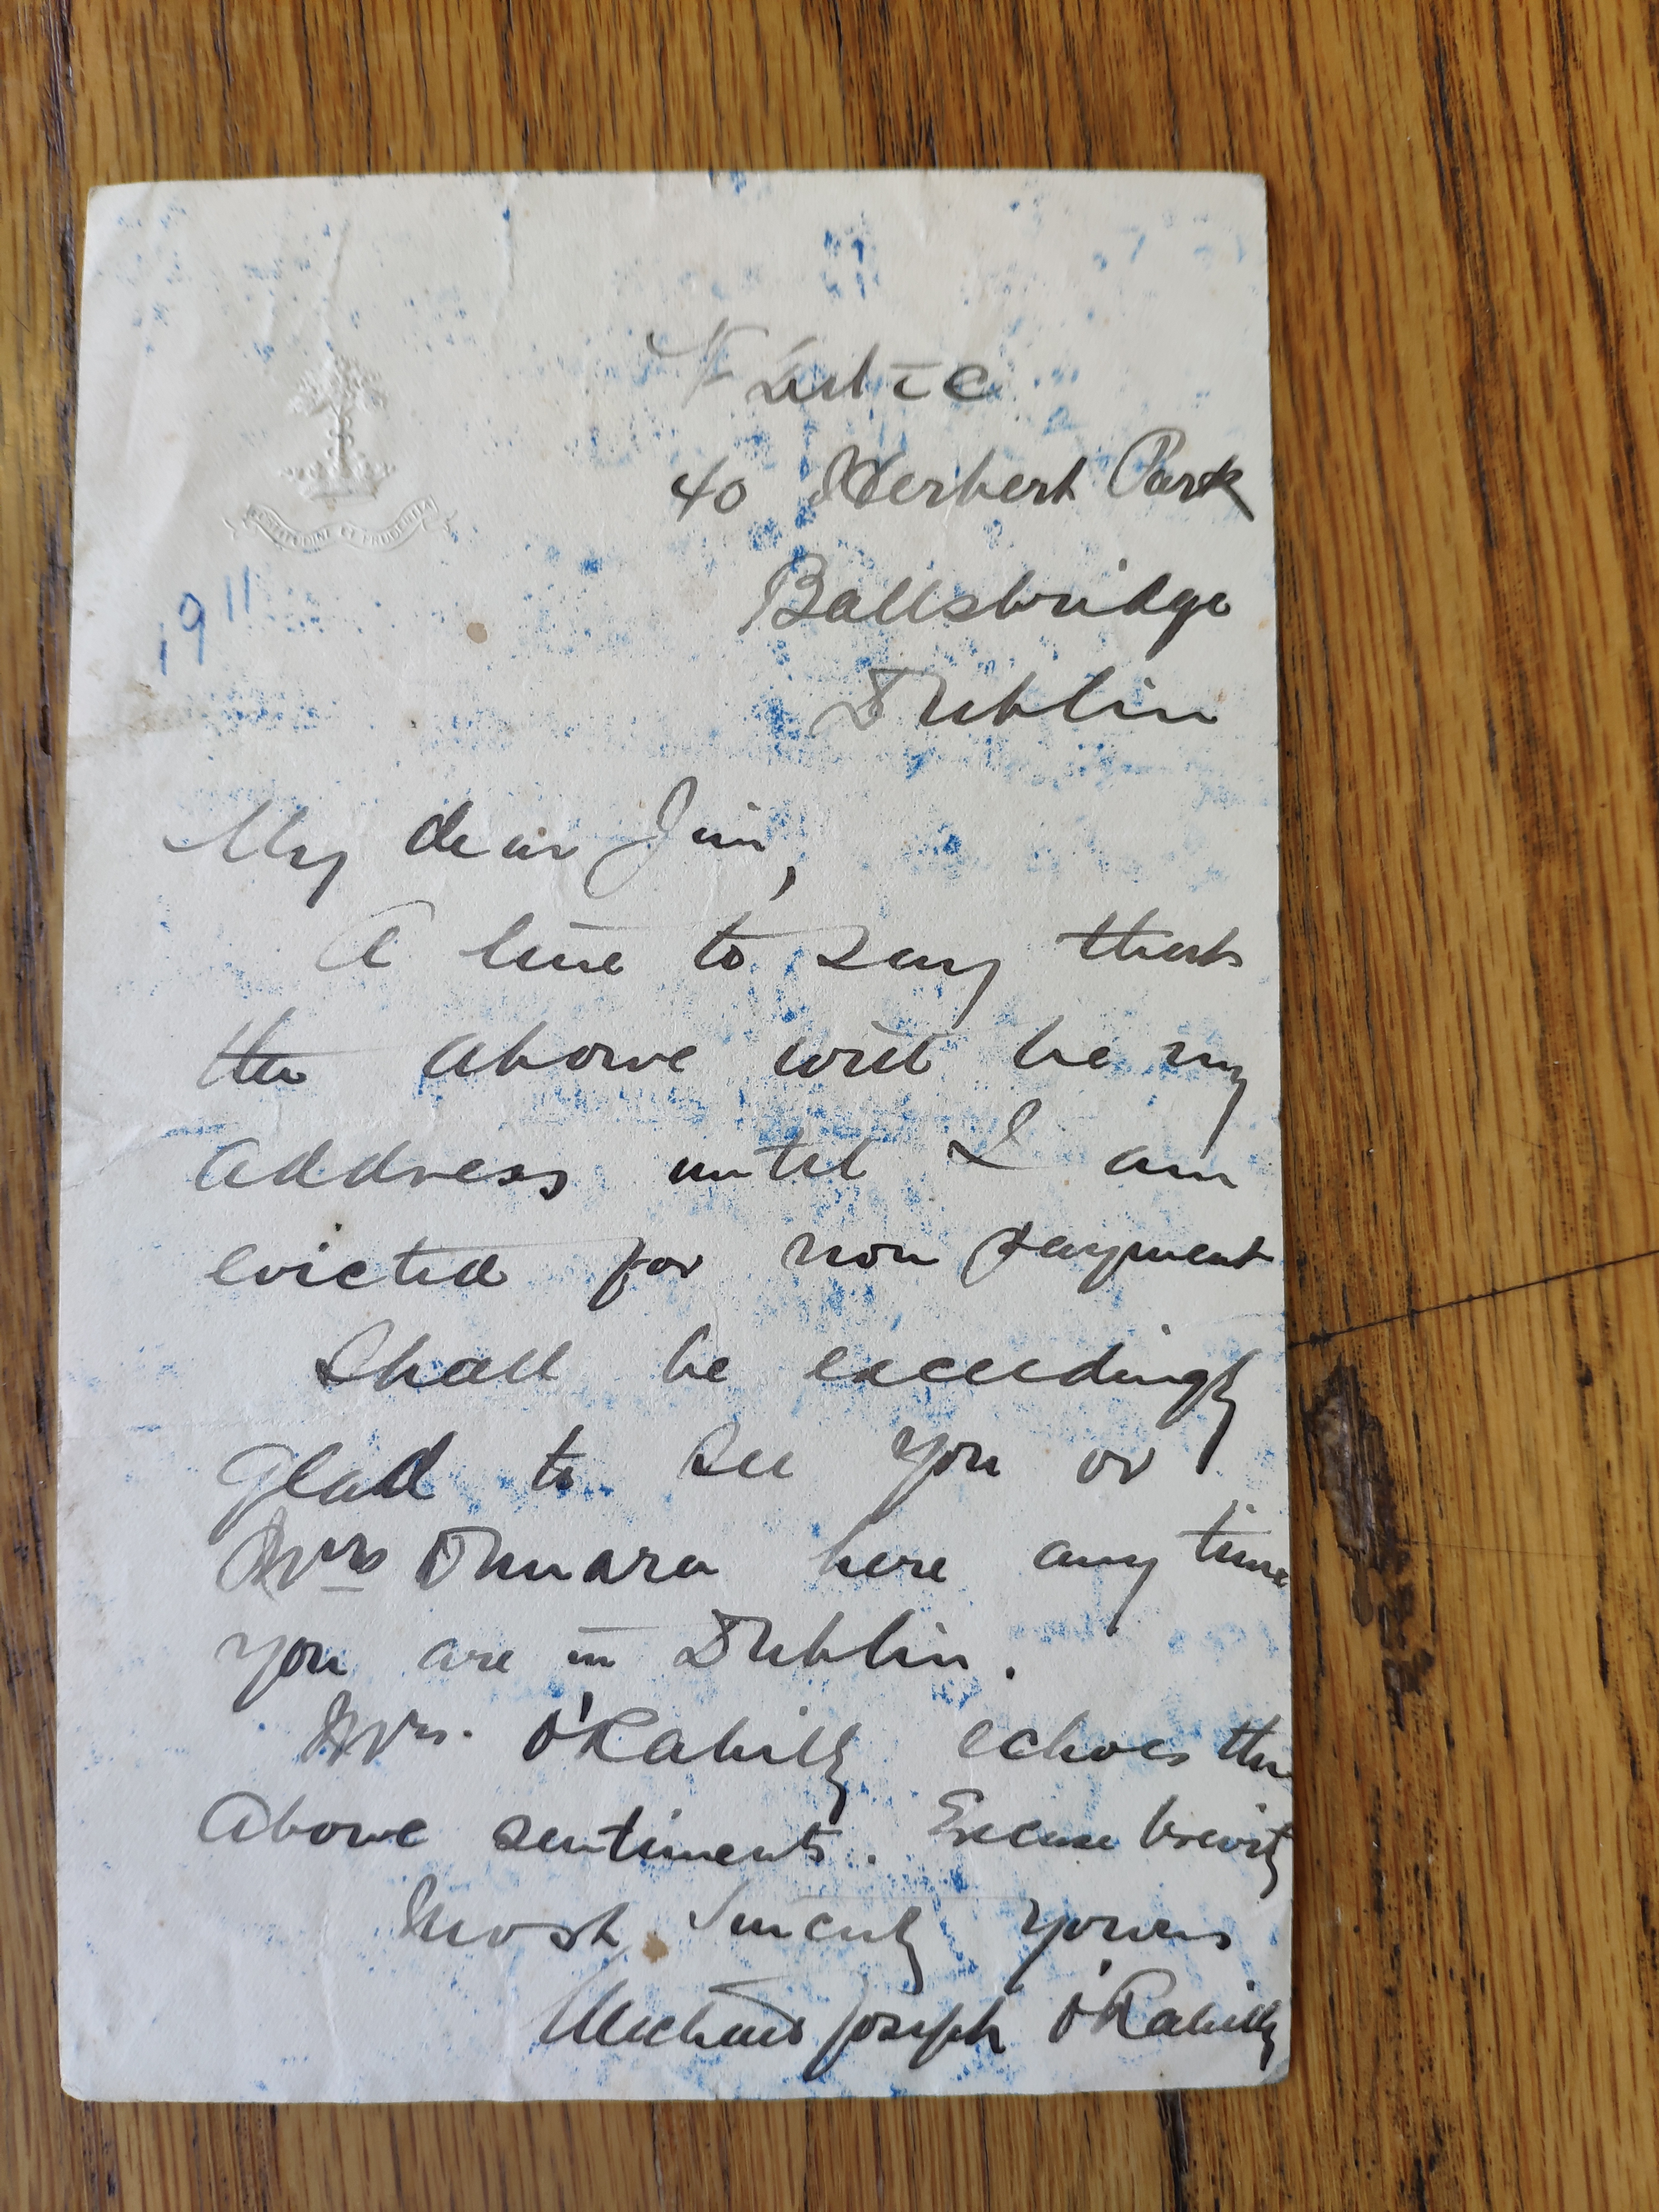 40 Herbert Park
Ballsbridge
Dublin
FORTITUDINE ET PRUDENTIA
1911
My dear Jim,
A line to say that
the above will be my
address until I am
evicted for non payment
Shall be exceedingly
glad to see you or
Mrs O'Mara here any time
you are in Dublin.
Mrs. O'Rahilly echoes the
above sentiments. Excuse brevity
Most Sincerely yours
Michael Joseph O'Rahilly